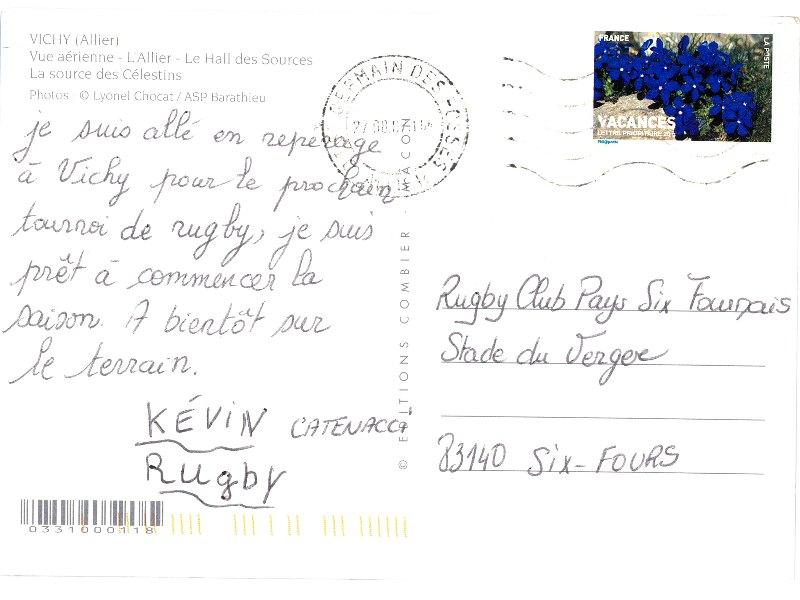 VICHY (Allier)
Vue aérienne - L'Allier - Le Hall des Sources
La source des Célestins
Photos : © Lyonel Chocat / ASP Barathieu
je suis allé en reperage
à Vichy pour le prochain
tournoi de rugby, je suis
prêt à commencer la
saison. A bientôt sur
le terrain.
KÉVIN CATENACCI
Rugby
0331000118
© EDITIONS COMBIER - MACON
GERMAIN DES FOSSES
FRANCE
LA POSTE
VACANCES
LETTRE PRIORITAIRE 20g
Rugby Club Pays Six Fournais
Stade du Verger
83140 SIX-FOURS